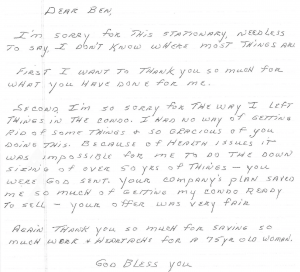 DEAR BEN,
I'M SORRY FOR THIS STATIONARY, NEEDLESS
TO SAY I DON'T KNOW WHERE MOST THINGS ARE
FIRST I WANT TO THANK YOU SO MUCH FOR
WHAT YOU HAVE DONE FOR ME.
SECOND, I'M SO SORRY FOR THE WAY I LEFT
THINGS IN THE CONDO. I HAD NO WAY OF GETTING
RID OF SOME THINGS & SO GRACIOUS OF YOU
DOING THIS. BECAUSE OF HEALTH ISSUES IT
WAS IMPOSSIBLE FOR ME TO DO THE DOWN
SIZING OF OVER 50 YRS OF THINGS - YOU
WERE GOD SENT. YOUR COMPANY'S PLAN SAVED
ME SO MUCH OF GETTING MY CONDO READY
TO SELL - YOUR OFFER WAS VERY FAIR
AGAIN THANK YOU SO MUCH FOR SAVING SO
MUCH WORK & HEARTACHE FOR A 75YR OLD WOMAN.
GOD BLESS YOU